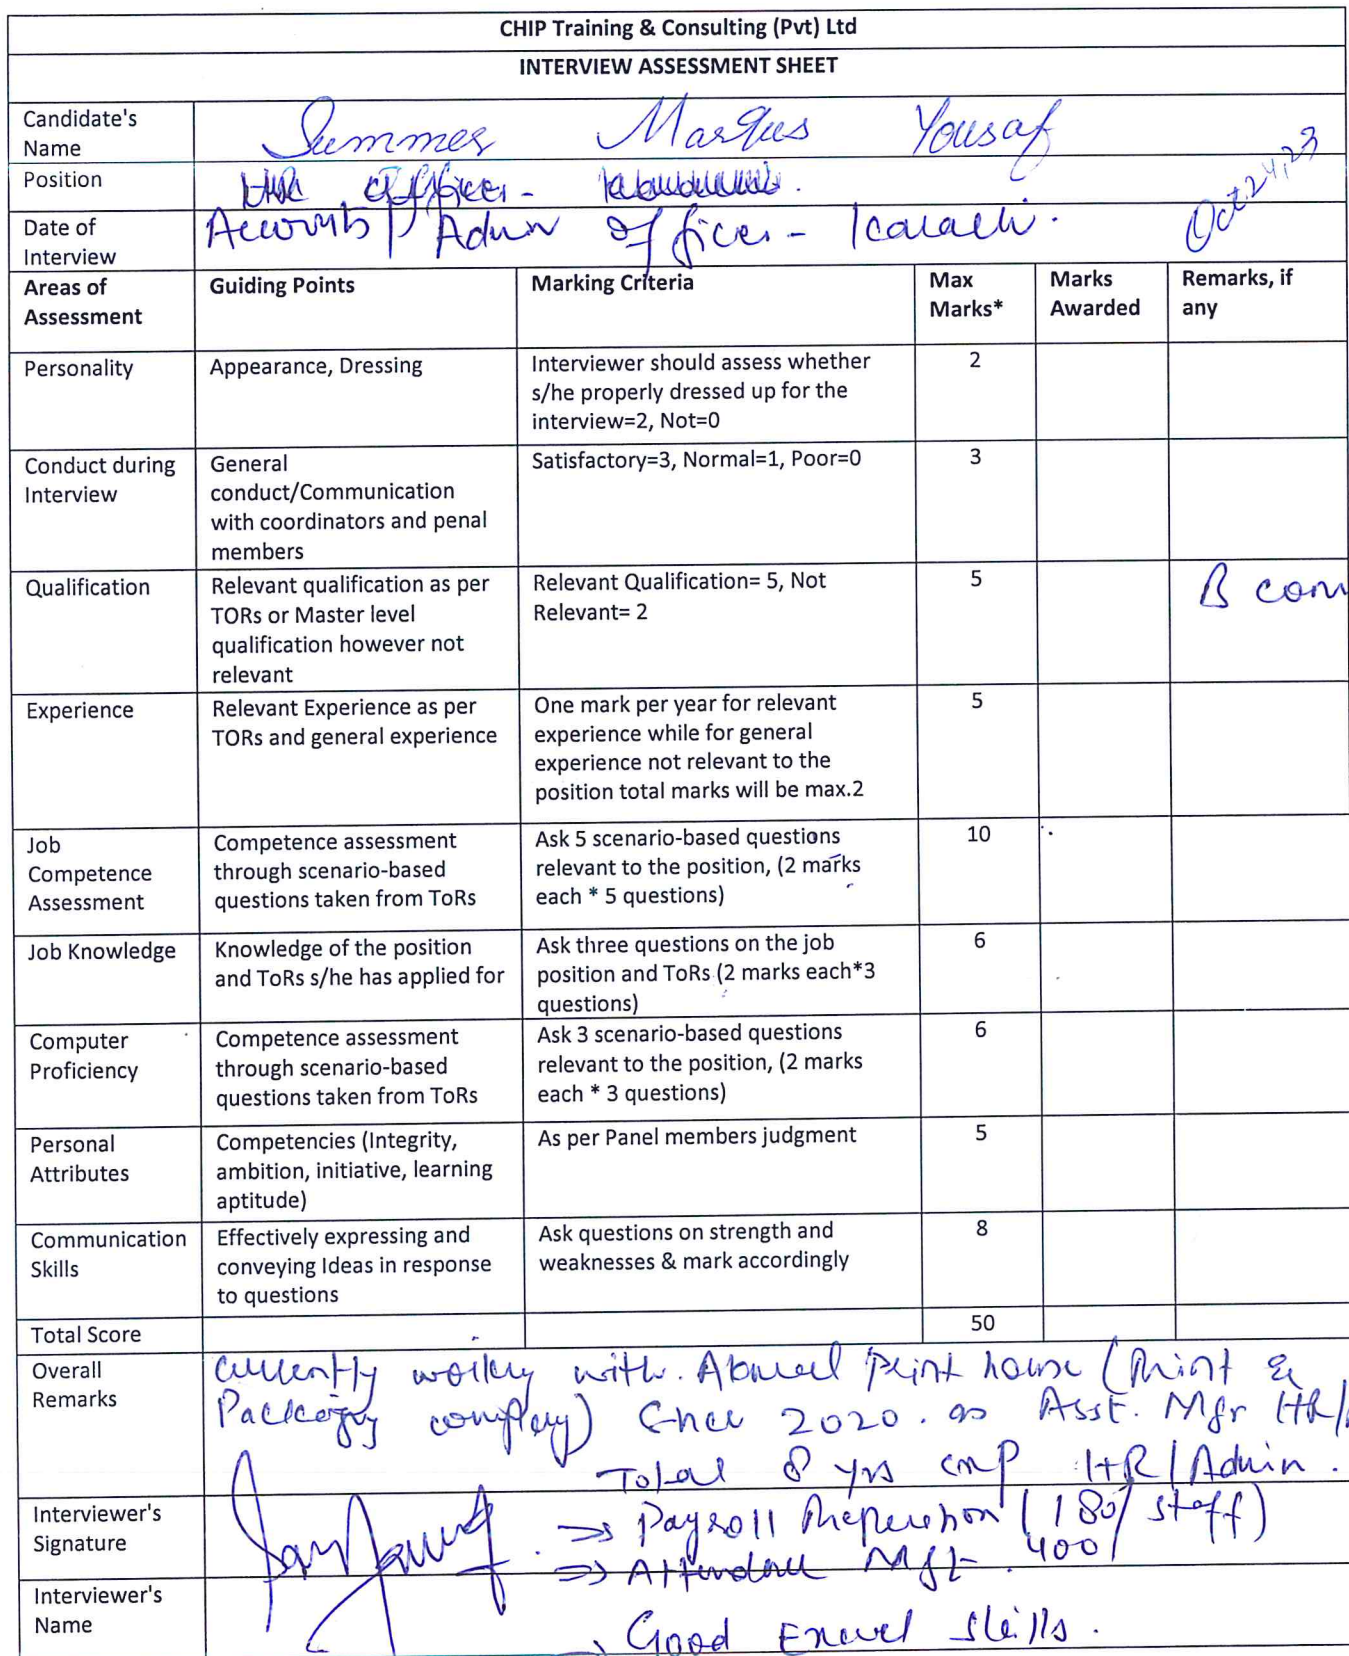 CHIP Training & Consulting (Pvt) Ltd
INTERVIEW ASSESSMENT SHEET
Candidate's Name
Summer Marqus Yousaf
Position
HR Officer -
Date of Interview
Accounts / Admin Officer - Karachi.
Oct. 24, 23
Areas of Assessment
Guiding Points
Marking Criteria
Max Marks*
Marks Awarded
Remarks, if any
Personality
Appearance, Dressing
Interviewer should assess whether
s/he properly dressed up for the
interview=2, Not=0
2
Conduct during
Interview
General
conduct/Communication
with coordinators and penal
members
Satisfactory=3, Normal=1, Poor=0
3
Qualification
Relevant qualification as per
TORs or Master level
qualification however not
relevant
Relevant Qualification= 5, Not
Relevant= 2
5
B com
Experience
Relevant Experience as per
TORs and general experience
One mark per year for relevant
experience while for general
experience not relevant to the
position total marks will be max.2
5
Job
Competence
Assessment
Competence assessment
through scenario-based
questions taken from ToRs
Ask 5 scenario-based questions
relevant to the position, (2 marks
each * 5 questions)
10
Job Knowledge
Knowledge of the position
and ToRs s/he has applied for
Ask three questions on the job
position and ToRs (2 marks each*3
questions)
6
Computer
Proficiency
Competence assessment
through scenario-based
questions taken from ToRs
Ask 3 scenario-based questions
relevant to the position, (2 marks
each * 3 questions)
6
Personal
Attributes
Competencies (Integrity,
ambition, initiative, learning
aptitude)
As per Panel members judgment
5
Communication
Skills
Effectively expressing and
conveying Ideas in response
to questions
Ask questions on strength and
weaknesses & mark accordingly
8
Total Score
50
Overall
Remarks
Currently working with print house (Print &
Packaging company) Since 2020. as Asst. Mgr HR/
Total 8 yrs exp HR/Admin.
Interviewer's
Signature
⇒ Payroll Preparation (180/ staff)
400
⇒ Attendance Mgt.
Interviewer's
Name
Good Excel skills.